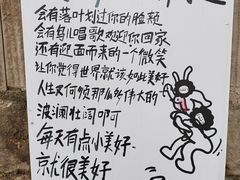 会有落叶划过你的脸颊
会有鸟儿唱歌欢迎你回家
还有迎面而来的一个微笑
让你觉得世界就该如此美好
人生又何须那么多伟大的
波澜壮阔啊
每天有点小美好
就很美好